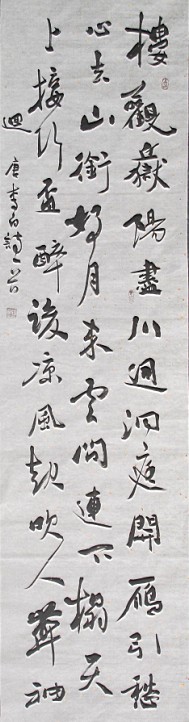 樓觀嶽陽盡川迥洞庭開鴈引愁
心去山銜好月来雲間連下榻天
上接行盃醉後凉風起吹人舞袖
迴
唐李白詩一首